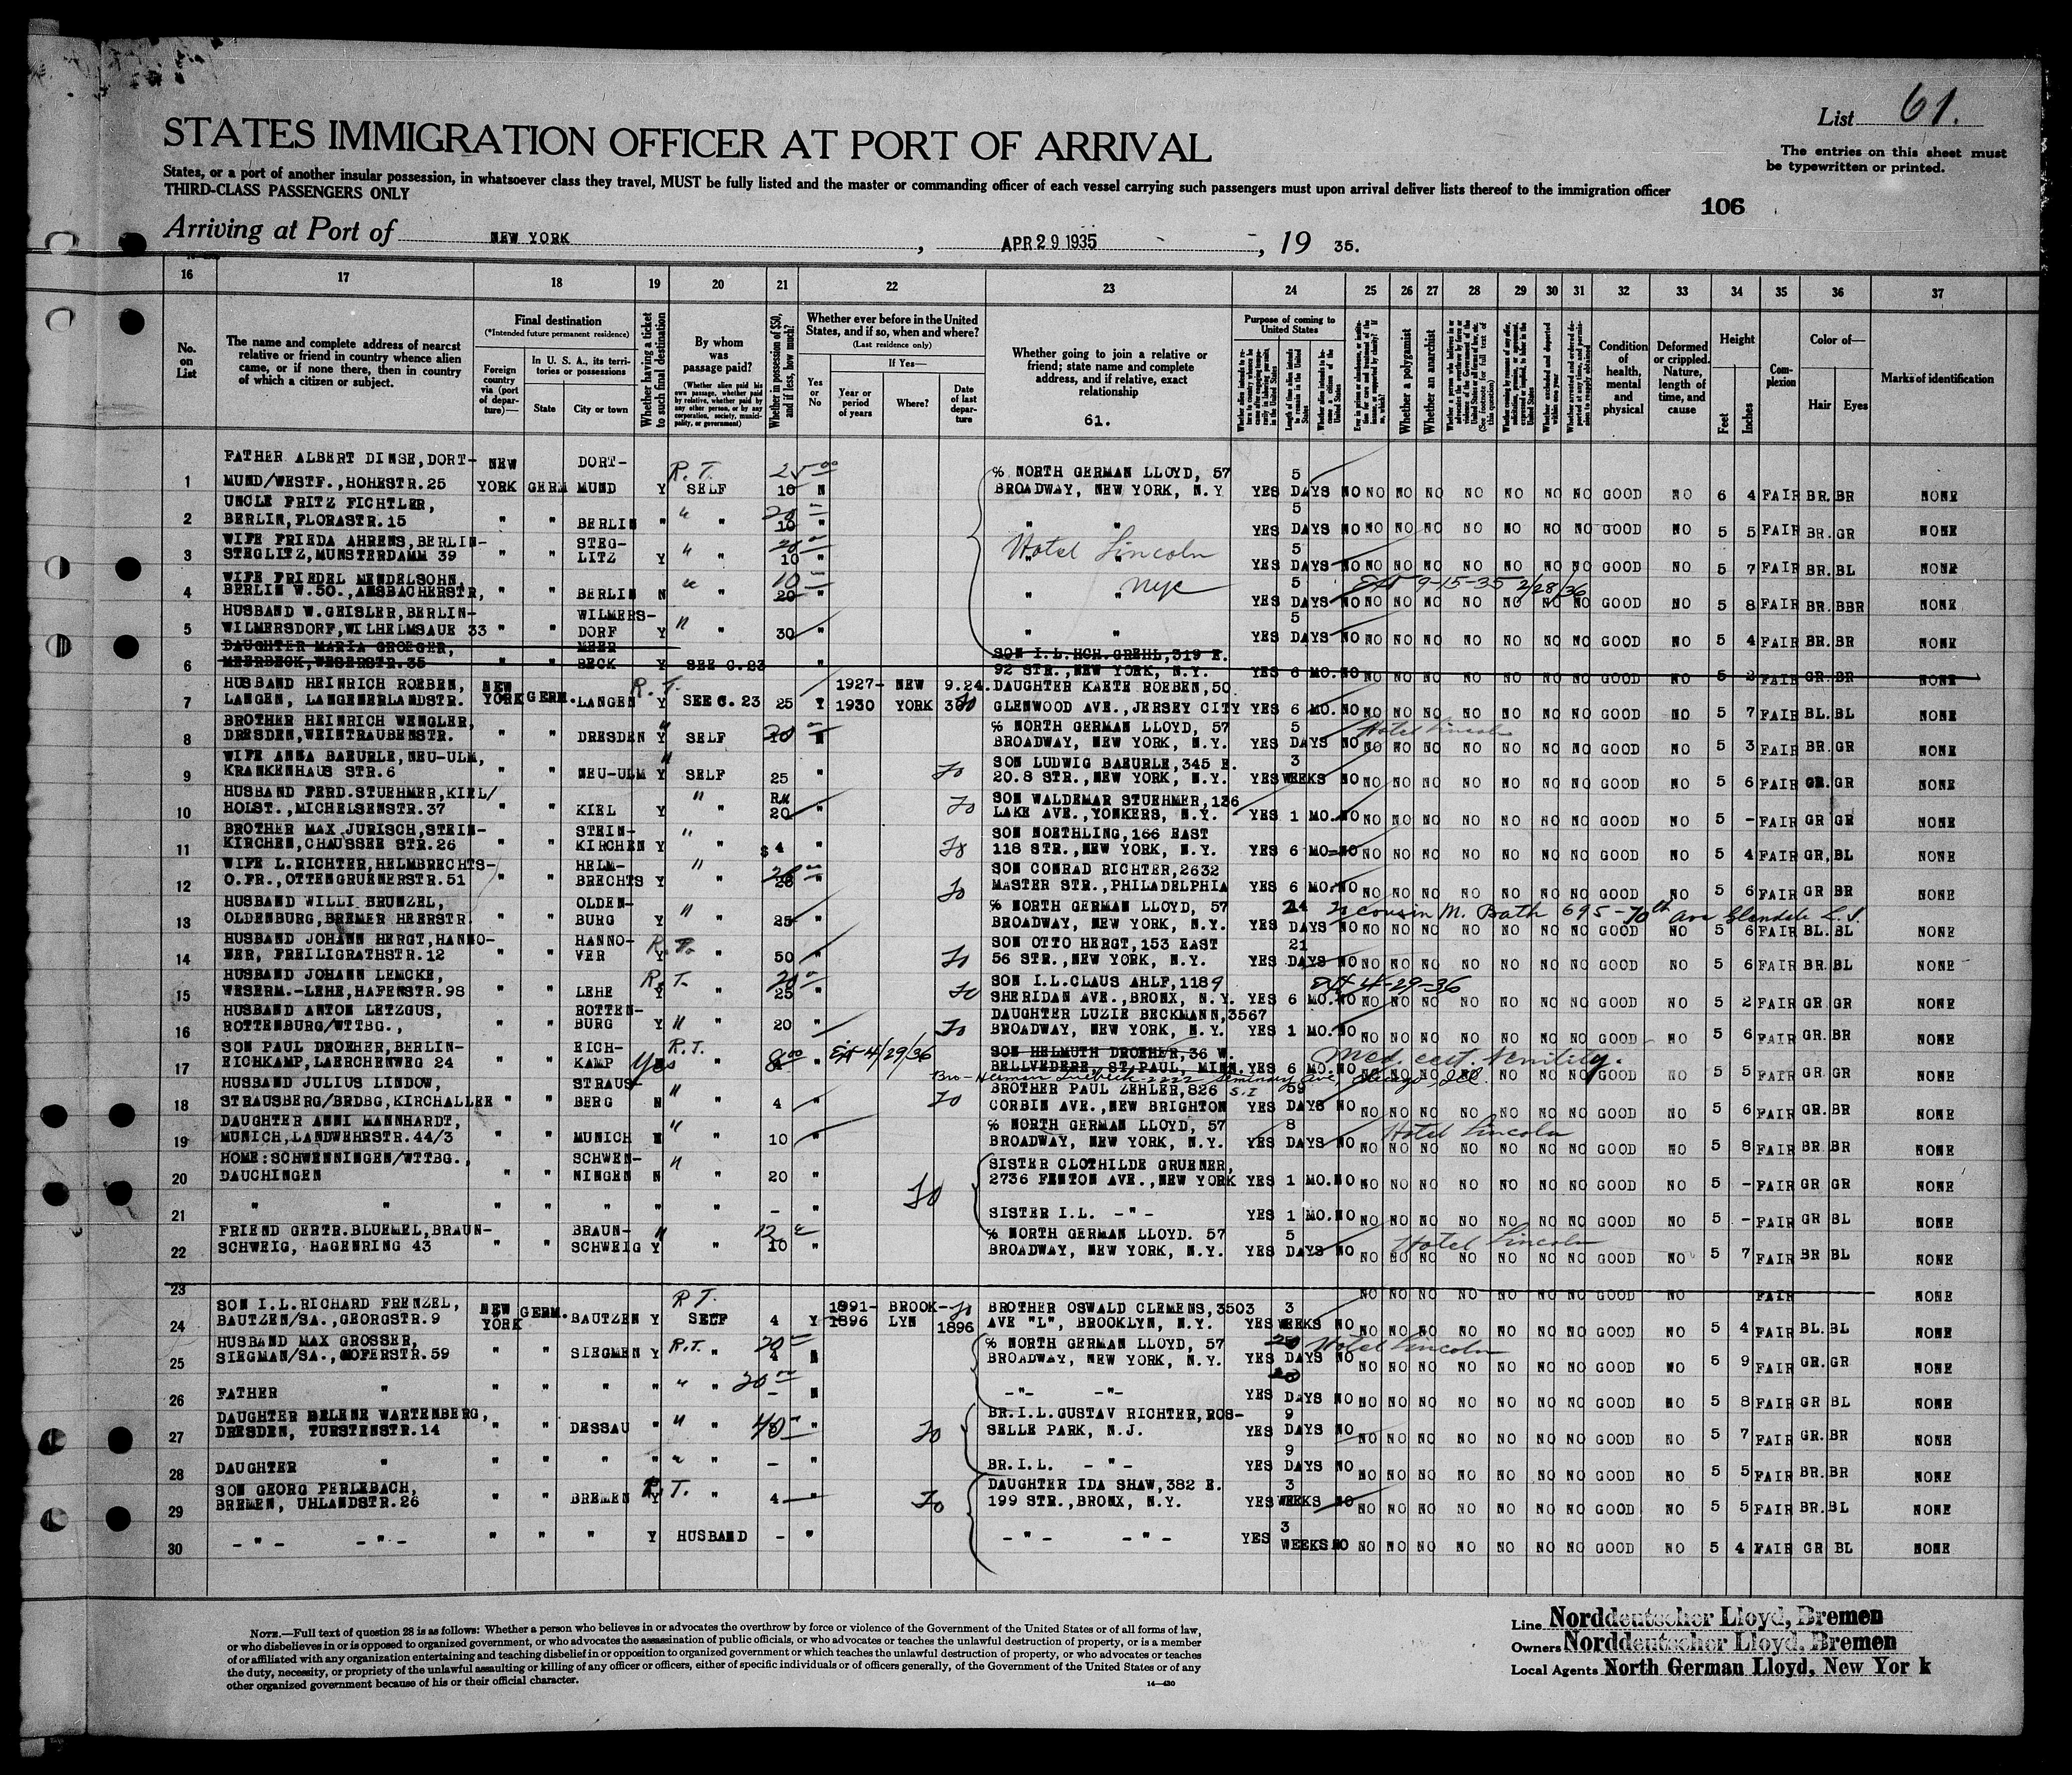 List 61.
STATES IMMIGRATION OFFICER AT PORT OF ARRIVAL
The entries on this sheet must
be typewritten or printed.
States, or a port of another insular possession, in whatsoever class they travel, MUST be fully listed and the master or commanding officer of each vessel carrying such passengers must upon arrival deliver lists thereof to the immigration officer
THIRD-CLASS PASSENGERS ONLY
106
Arriving at Port of NEW YORK , APR 29 1935 , 19 35.
16 17 18 19 20 21 22 23 24 25 26 27 28 29 30 31 32 33 34 35 36 37
No. on List
The name and complete address of nearest relative or friend in country whence alien came, or if none there, then in country of which a citizen or subject.
Final destination
(*Intended future permanent residence)
Foreign country via (port of departure)—
In U. S. A., its territories or possessions
State
City or town
Whether having a ticket to such final destination
By whom was passage paid?
(Whether alien paid his own passage, whether paid by relative, whether paid by any other person, or by any corporation, society, municipality, or government)
Whether in possession of $50, and if less, how much?
Whether ever before in the United States, and if so, when and where?
(Last residence only)
Yes or No
If Yes—
Year or period of years
Where?
Date of last departure
Whether going to join a relative or friend; state name and complete address, and if relative, exact relationship
61.
Purpose of coming to United States
Length of time alien intends to remain in the United States
Whether a polygamist
Whether an anarchist
Condition of health, mental and physical
Deformed or crippled. Nature, length of time, and cause
Height
Feet
Inches
Complexion
Color of—
Hair
Eyes
Marks of identification
FATHER ALBERT DINSE, DORT- NEW DORT- R.T. 25 00 ℅ NORTH GERMAN LLOYD, 57 5
1 MUND/WESTF.,HOHESTR.25 YORK GERM MUND Y SELF 10 N BROADWAY, NEW YORK, N.Y YES DAYS NO NO NO NO NO NO NO NO GOOD NO 6 4 FAIR BR. BR NONE
UNCLE FRITZ FICHTLER, 5
2 BERLIN,FLORASTR.15 " " BERLIN " " " 10 " " " YES DAYS NO NO NO NO NO NO NO NO GOOD NO 5 5 FAIR BR. GR NONE
WIFE FRIEDA AHRENS,BERLIN- STEG- Hotel Lincoln 5
3 STEGLITZ,MUNSTERDAMM 39 " " LITZ Y " " 10 " " " YES DAYS NO NO NO NO NO NO NO NO GOOD NO 5 7 FAIR BR. BL NONE
WIFE FRIEDEL MENDELSOHN, 10 NYC 5 Ext 9-15-35 2/28/36
4 BERLIN W.50.,ANSBACHERSTR, " " BERLIN N " " 20 " " " YES DAYS NO NO NO NO NO NO NO NO GOOD NO 5 8 FAIR BR. BBR NONE
HUSBAND W.GEISLER,BERLIN- WILMERS- 5
5 WILMERSDORF,WILHELMSAUE 33 " " DORF Y " " 30 " " " YES DAYS NO NO NO NO NO NO NO NO GOOD NO 5 4 FAIR BR. BR NONE
DAUGHTER MARIA GROEGER, MEER SON I.L.HCH.GREHL,319 E.
6 MEERBECK,WESERSTR.35 " " BECK Y SEE C.23 " 92 STR.,NEW YORK, N.Y. YES 6 MO. NO NO NO NO NO NO NO NO GOOD NO 5 2 FAIR GR. BR NONE
HUSBAND HEINRICH ROEBEN, NEW R.T. 1927- NEW 9.24. DAUGHTER KAETE ROEBEN,50
7 LANGEN, LANGENERLANDSTR. YORK GERM. LANGEN Y SEE C. 23 25 Y 1930 YORK 30 GLENWOOD AVE.,JERSEY CITY YES 6 MO. NO NO NO NO NO NO NO NO GOOD NO 5 7 FAIR BL. BL NONE
BROTHER HEINRICH WENGLER, ℅ NORTH GERMAN LLOYD, 57 5 Hotel Lincoln
8 DRESDEN,WEINTRAUBENSTR. " " DRESDEN Y SELF 10 N BROADWAY, NEW YORK, N.Y. YES DAYS NO NO NO NO NO NO NO NO GOOD NO 5 3 FAIR BR. GR NONE
WIFE ANNA BAEURLE,NEU-ULM, SON LUDWIG BAEURLE,345 E. 3
9 KRANKENHAUS STR.6 " " NEU-ULM Y SELF 25 " 20.8 STR.,NEW YORK, N.Y. YES WEEKS NO NO NO NO NO NO NO NO GOOD NO 5 6 FAIR GR. GR NONE
HUSBAND FERD.STUEHMER,KIEL/ RM SON WALDEMAR STUEHMER,126
10 HOLST.,MICHELSENSTR.37 " " KIEL Y " 20 " LAKE AVE.,YONKERS, N.Y. YES 1 MO. NO NO NO NO NO NO NO NO GOOD NO 5 - FAIR GR GR NONE
BROTHER MAX JURISCH,STEIN- STEIN- SON NOERTHLING,166 EAST
11 KIRCHEN,CHAUSSEE STR.26 " " KIRCHEN Y " $ 4 " 118 STR.,NEW YORK, N.Y. YES 6 MO. NO NO NO NO NO NO NO NO GOOD NO 5 4 FAIR GR, BL NONE
WIFE L.RICHTER,HELMBRECHTS- HELM- SON CONRAD RICHTER,2632
12 O.FR.,OTTENGRUENERSTR.51 " " BRECHTS Y " " MASTER STR.,PHILADELPHIA YES 6 MO. NO NO NO NO NO NO NO NO GOOD NO 5 6 FAIR GR BR NONE
HUSBAND WILLI BRUNZEL, OLDEN- ℅ NORTH GERMAN LLOYD, 57 cousin M. Bath 695-70th Ave Glendale L.I.
13 OLDENBURG,BREMER HEERSTR. " " BURG Y " 25 " BROADWAY, NEW YORK, N.Y. YES DAYS NO NO NO NO NO NO NO NO GOOD NO 5 6 FAIR BL. BL NONE
HUSBAND JOHANN HERGT,HANNO- HANNO- R.T. SON OTTO HERGT,153 EAST 21
14 VER, FREILIGRATHSTR.12 " " VER Y " 50 " 56 STR.,NEW YORK, N.Y. YES DAYS NO NO NO NO NO NO NO NO GOOD NO 5 6 FAIR BR. BL NONE
HUSBAND JOHANN LEMCKE, R.T. 20 SON I.L.CLAUS AHLF,1189 Ext 4-29-36
15 WESERM.-LEHE,HAFENSTR.98 " " LEHE Y " 25 " SHERIDAN AVE.,BRONX, N.Y. YES 6 MO. NO NO NO NO NO NO NO NO GOOD NO 5 2 FAIR GR GR NONE
HUSBAND ANTON LETZGUS, ROTTEN- DAUGHTER LUZIE BECKMANN,3567
16 ROTTENBURG/WTTBG., " " BURG Y " " 20 " BROADWAY, NEW YORK, N.Y. YES 1 MO. NO NO NO NO NO NO NO NO GOOD NO 5 6 FAIR GR. BR NONE
SON PAUL DROEHER,BERLIN- EICH- R.T. Ext 4/29/36 SON HELMUTH DROEHER,36 W. Med. cert. senility.
17 EICHKAMP,LAERCHENWEG 24 " " KAMP Yes " " BELLVEDERE, ST.PAUL, MINN. YES 6 MO. NO NO NO NO NO NO NO GOOD NO 5 5 FAIR GR GR NONE
Bro-Herman 2222 Seminary Ave, Chicago, Ill.
HUSBAND JULIUS LINDOW, STRAUS- BROTHER PAUL ZEHLER,826 S.I 59
18 STRAUSBERG/BRDBG,KIRCHALLEE " " BERG N " " 4 " CORBIN AVE.,NEW BRIGHTON YES DAYS NO NO NO NO NO NO NO NO GOOD NO 5 6 FAIR GR. BR NONE
DAUGHTER ANNI MANNHARDT, ℅ NORTH GERMAN LLOYD, 57 8 Hotel Lincoln
19 MUNICH,LANDWEHRSTR.44/3 " " MUNICH N " " 10 " BROADWAY, NEW YORK, N.Y. YES DAYS NO NO NO NO NO NO NO NO GOOD NO 5 8 FAIR BR. BR NONE
HOME:SCHWENNINGEN/WTTBG., SCHWEN- SISTER CLOTHILDE GRUENER,
20 DAUCHINGEN " " NINGEN N " " 20 " 2736 FENTON AVE.,NEW YORK YES 1 MO. NO NO NO NO NO NO NO NO GOOD NO 5 - FAIR GR GR NONE
21 " " " " " " " - " SISTER I.L. -"- YES 1 MO. NO NO NO NO NO NO NO NO GOOD NO 5 - FAIR GR BL NONE
FRIEND GERTR.BLUEMEL,BRAUN- BRAUN- " 12 ℅ NORTH GERMAN LLOYD. 57 5 Hotel Lincoln
22 SCHWEIG, HAGENRING 43 " " SCHWEIG Y " 10 " BROADWAY, NEW YORK, N.Y. YES DAYS NO NO NO NO NO NO NO NO GOOD NO 5 7 FAIR BR BL NONE
23 NO NO NO NO NO NO NO GOOD NO FAIR NONE
SON I.L.RICHARD FRENZEL, NEW GERM. R.T. 1891- BROOK- BROTHER OSWALD CLEMENS,3503 3
24 BAUTZEN/SA.,GEORGSTR.9 YORK BAUTZEN Y SELF 4 Y 1896 LYN 1896 AVE "L", BROOKLYN, N.Y. YES WEEKS NO NO NO NO NO NO NO NO GOOD NO 5 4 FAIR BL. BL NONE
HUSBAND MAX GROSSER, R.T. 20 ℅ NORTH GERMAN LLOYD, 57 Hotel Lincoln
25 SIEGMAN/SA.,HOFERSTR.59 " " SIEGMEN Y " 4 N BROADWAY, NEW YORK, N.Y. YES DAYS NO NO NO NO NO NO NO NO GOOD NO 5 9 FAIR GR. GR NONE
26 FATHER " " " " " " " 20 - N -"- -"- YES DAYS NO NO NO NO NO NO NO NO GOOD NO 5 8 FAIR GR BL NONE
DAUGHTER HELENE WARTENBERG, BR.I.L.GUSTAV RICHTER,ROS- 9
27 DRESDEN, TURSTENSTR.14 " " DESSAU " " " 40 " SELLE PARK, N.J. YES DAYS NO NO NO NO NO NO NO NO GOOD NO 5 7 FAIR GR. BR NONE
9
28 DAUGHTER " " " " " " " - " BR.I.L. -"- YES DAYS NO NO NO NO NO NO NO NO GOOD NO 5 5 FAIR BR. BR NONE
SON GEORG PERLEBACH, R.T. DAUGHTER IDA SHAW,382 E. 3
29 BREMEN, UHLANDSTR.26 " " BREMEN Y " 4 " 199 STR.,BRONX, N.Y. YES WEEKS NO NO NO NO NO NO NO NO GOOD NO 5 5 FAIR BR. BL NONE
3
30 -"- -"- " " " Y HUSBAND - " -"- -"- YES WEEKS NO NO NO NO NO NO NO NO GOOD NO 5 4 FAIR GR BL NONE
NOTE.—Full text of question 28 is as follows: Whether a person who believes in or advocates the overthrow by force or violence of the Government of the United States or of all forms of law,
or who disbelieves in or is opposed to organized government, or who advocates the assassination of public officials, or who advocates or teaches the unlawful destruction of property, or is a member
of or affiliated with any organization entertaining and teaching disbelief in or opposition to organized government or which teaches the unlawful destruction of property, or who advocates or teaches
the duty, necessity, or propriety of the unlawful assaulting or killing of any officer or officers, either of specific individuals or of officers generally, of the Government of the United States or of any
other organized government because of his or their official character.
14—430
Line Norddeutscher Lloyd, Bremen
Owners Norddeutscher Lloyd, Bremen
Local Agents North German Lloyd, New York